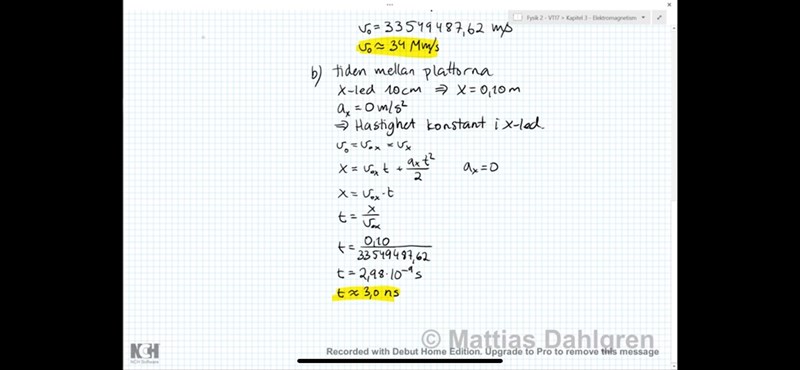 Fysik 2 - VT17 » Kapitel 3 - Elektromagnetism
v₀ = 33549487,62 m/s
v₀ ≈ 34 Mm/s
b) tiden mellan plattorna
x-led 10cm ⇒ x = 0,10 m
aₓ = 0 m/s²
⇒ Hastighet konstant i x-led
v₀ = v₀ₓ = vₓ
x = v₀ₓ t + aₓt²/2 aₓ = 0
x = v₀ₓ · t
t = x/v₀ₓ
t = 0,10/33549487,62
t = 2,98 · 10⁻⁹ s
t ≈ 3,0 ns
© Mattias Dahlgren
NCH
NCH Software
Recorded with Debut Home Edition. Upgrade to Pro to remove this message